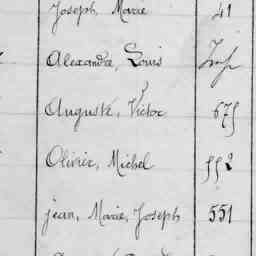 Joseph, Marie 41
Alexandre, Louis
Auguste, Victor 675
Olivier, Michel 552
Jean, Marie, Joseph 551